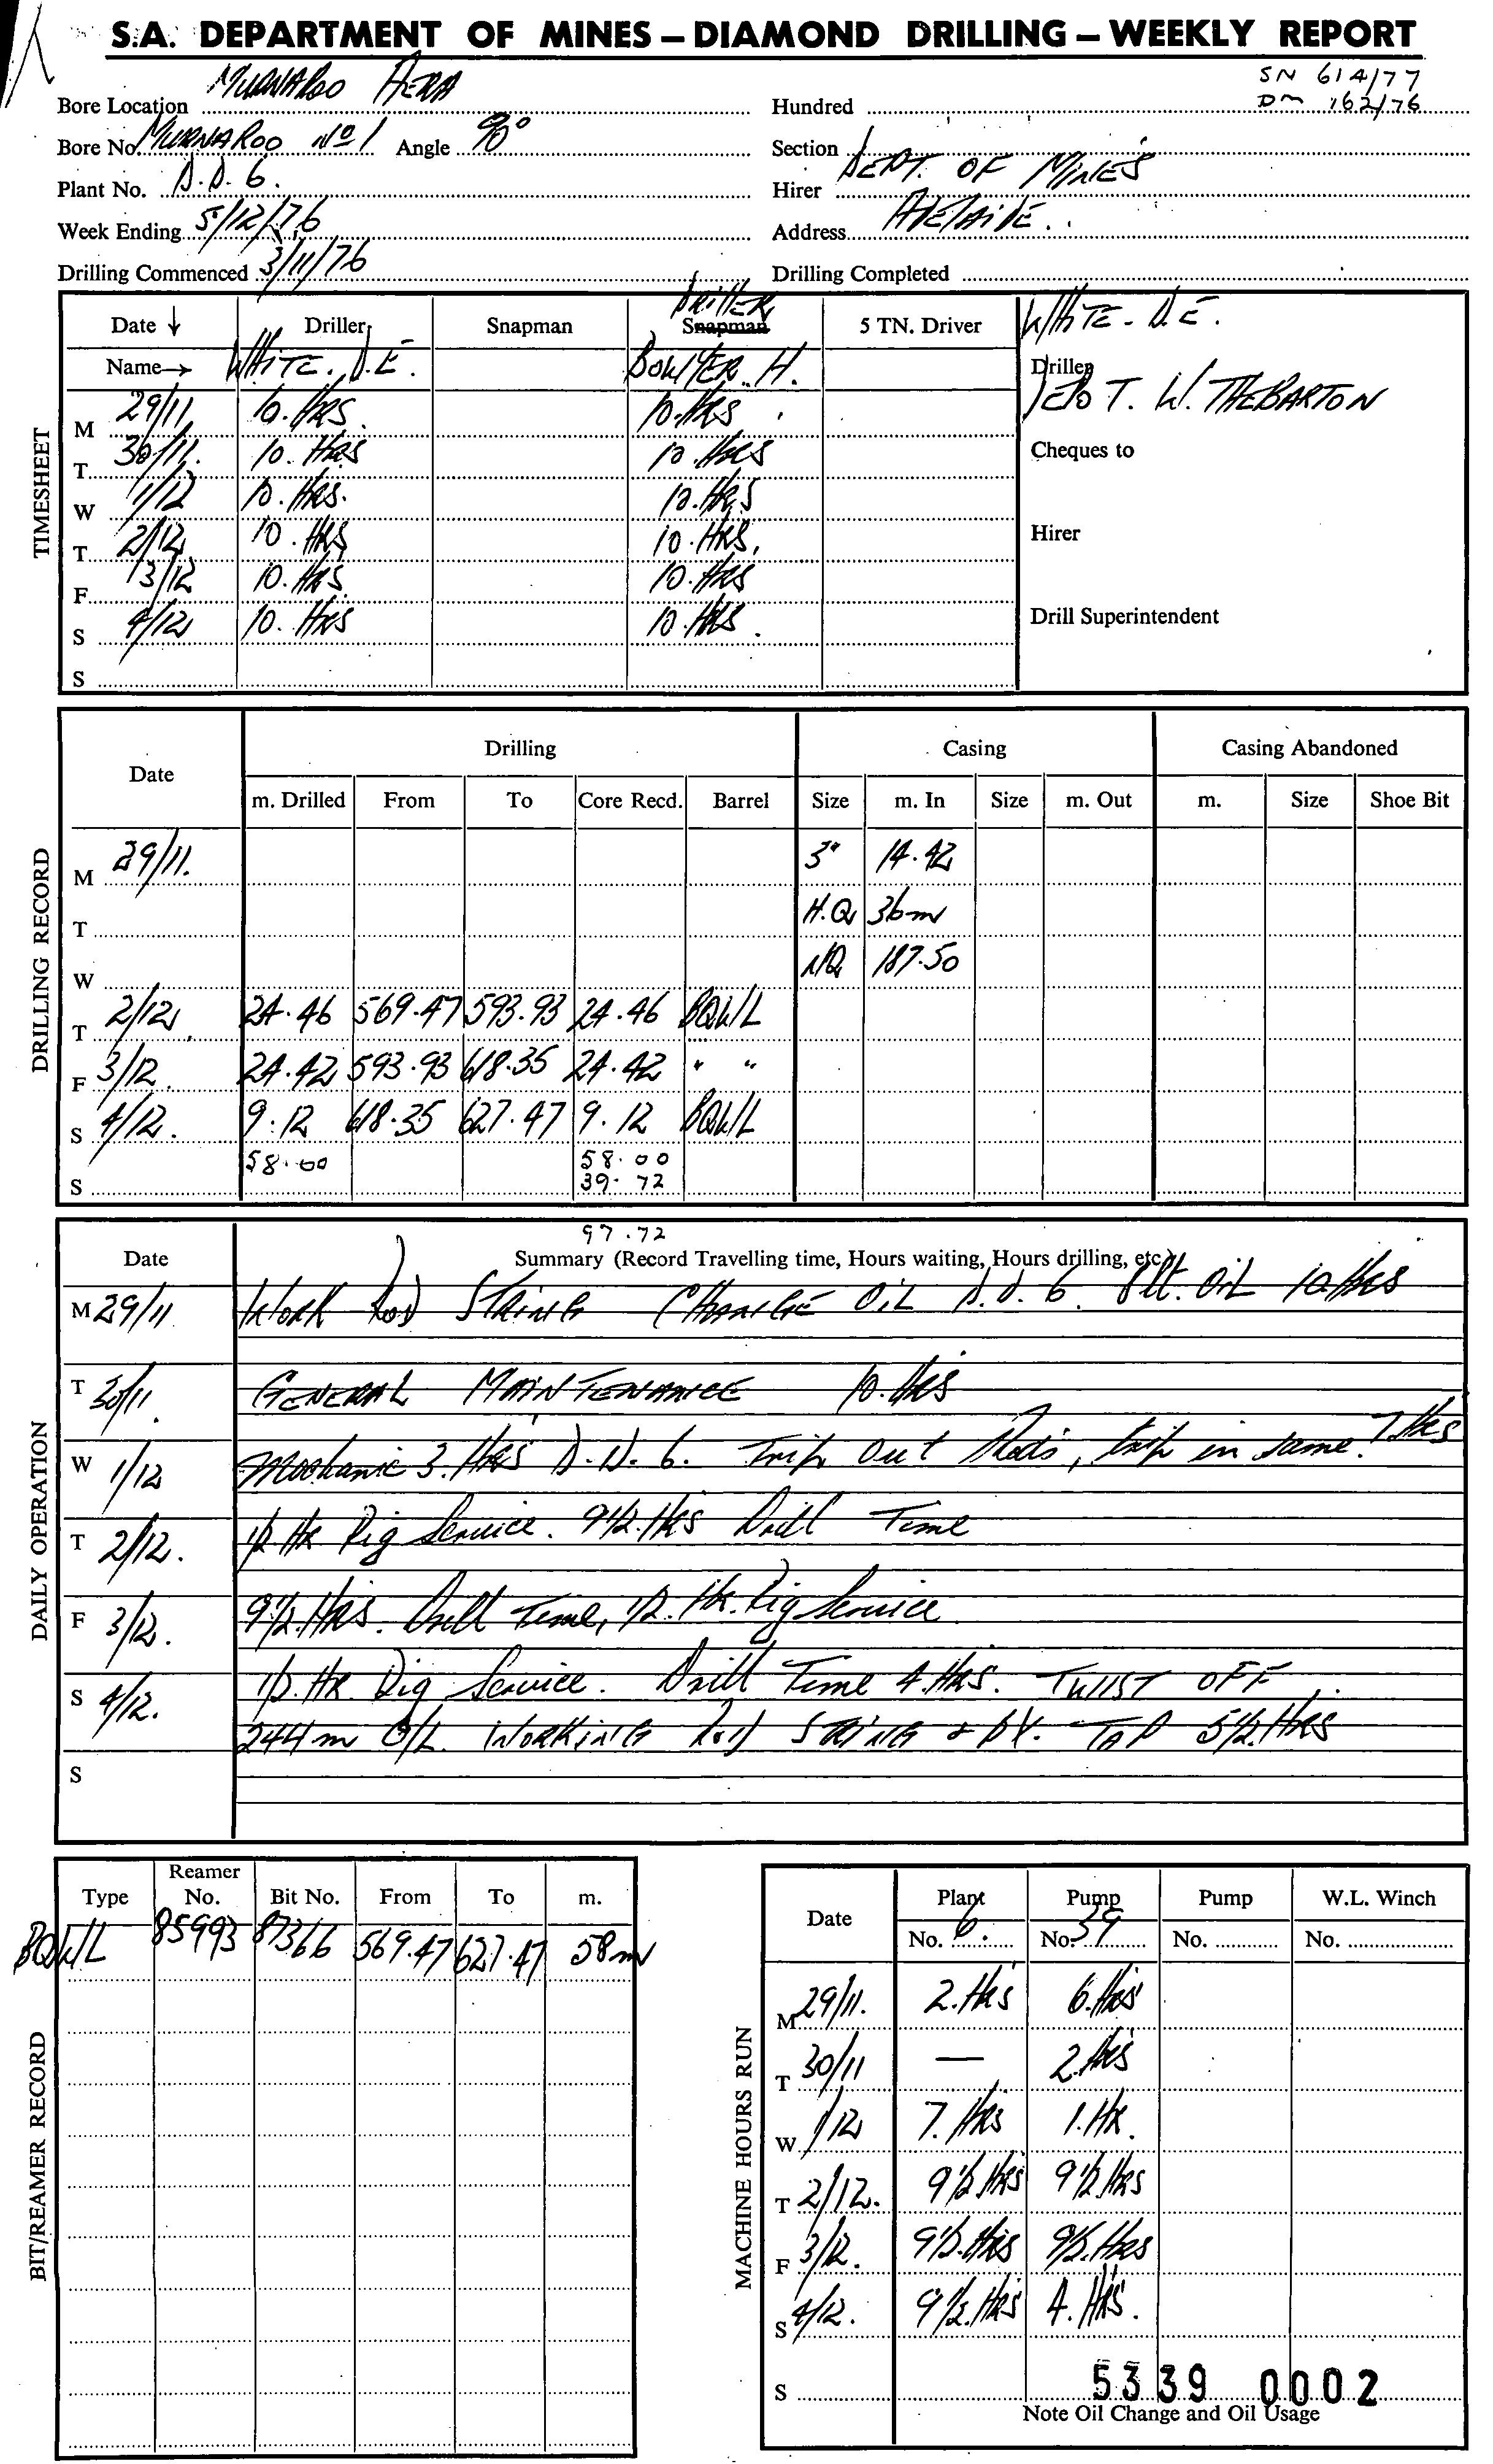 S.A. DEPARTMENT OF MINES – DIAMOND DRILLING – WEEKLY REPORT
SN 614/77
DM 162/76
Bore Location MURNAROO AERA Hundred
Bore No. MURNAROO No 1 Angle 90° Section
Plant No. D.D. 6. Hirer DEPT. OF MINES
Week Ending 5/12/76 Address ADELAIDE.
Drilling Commenced 3/11/76 Drilling Completed
TIMESHEET
Date ↓ Driller Snapman Snapman DRILLER 5 TN. Driver WHITE. D.E.
Name→ WHITE. D.E. BOWYER H. Driller
M 29/11 10. HRS. 10. HRS T. W. THEBARTON
T 30/11. 10. HRS 10. HRS Cheques to
W 1/12 10. HRS. 10. HRS
T 2/12 10. HRS 10. HRS. Hirer
F 3/12 10. HRS 10. HRS
S 4/12 10. HRS 10. HRS. Drill Superintendent
S
DRILLING RECORD
Date Drilling Casing Casing Abandoned
m. Drilled From To Core Recd. Barrel Size m. In Size m. Out m. Size Shoe Bit
M 29/11. 3" 14.42
T H.Q 36m
W NQ 187.50
T 2/12 24.46 569.47 593.93 24.46 BQW/L
F 3/12. 24.42 593.93 618.35 24.42 " "
S 4/12. 9.12 618.35 627.47 9.12 BQW/L
58.00 58.00
S 39.72
97.72
DAILY OPERATION
Date Summary (Record Travelling time, Hours waiting, Hours drilling, etc.)
M 29/11 WORK ROD STRING CHANGE OIL D.D. 6. 8lt. OIL 10. HRS
T 30/11. GENERAL MAINTENANCE 10. HRS
W 1/12 Mechanic 3. HRS D.D. 6. Trip out Rods, trip in same. 7 HRS
T 2/12. 1/2 HR Rig Service. 9 1/2. HRS Drill Time
F 3/12. 9 1/2. HRS. Drill Time, 1/2. HR. Rig Service
S 4/12. 1/2. HR Rig Service. Drill Time 4. HRS. TWIST OFF
244m O/L. WORKING ROD STRING & TAP 5 1/2. HRS
S
BIT/REAMER RECORD
Type Reamer No. Bit No. From To m.
BQW/L 85993 87366 569.47 627.47 58m
MACHINE HOURS RUN
Date Plant Pump Pump W.L. Winch
No. 6. No. 39 No. No.
M 29/11. 2. HRS 6. HRS
T 30/11 — 2. HRS
W 1/12 7. HRS 1. HR.
T 2/12. 9 1/2 HRS 9 1/2 HRS
F 3/12. 9 1/2. HRS 9 1/2. HRS
S 4/12. 9 1/2. HRS 4. HRS.
S 5339 0002
Note Oil Change and Oil Usage